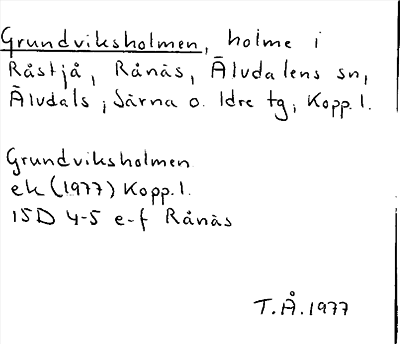 Grundviksholmen, holme i
Råstjå, Rånäs, Älvdalens sn,
Älvdals, Särna o. Idre tg, Kopp. l.
Grundviksholmen
ek (1977) Kopp. l.
15D 4-5 e-f Rånäs
T.Å. 1977